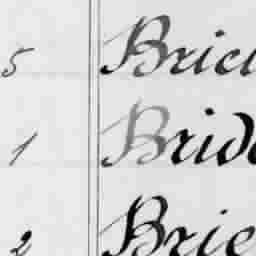 5 Bried
1 Bride
2 Brie